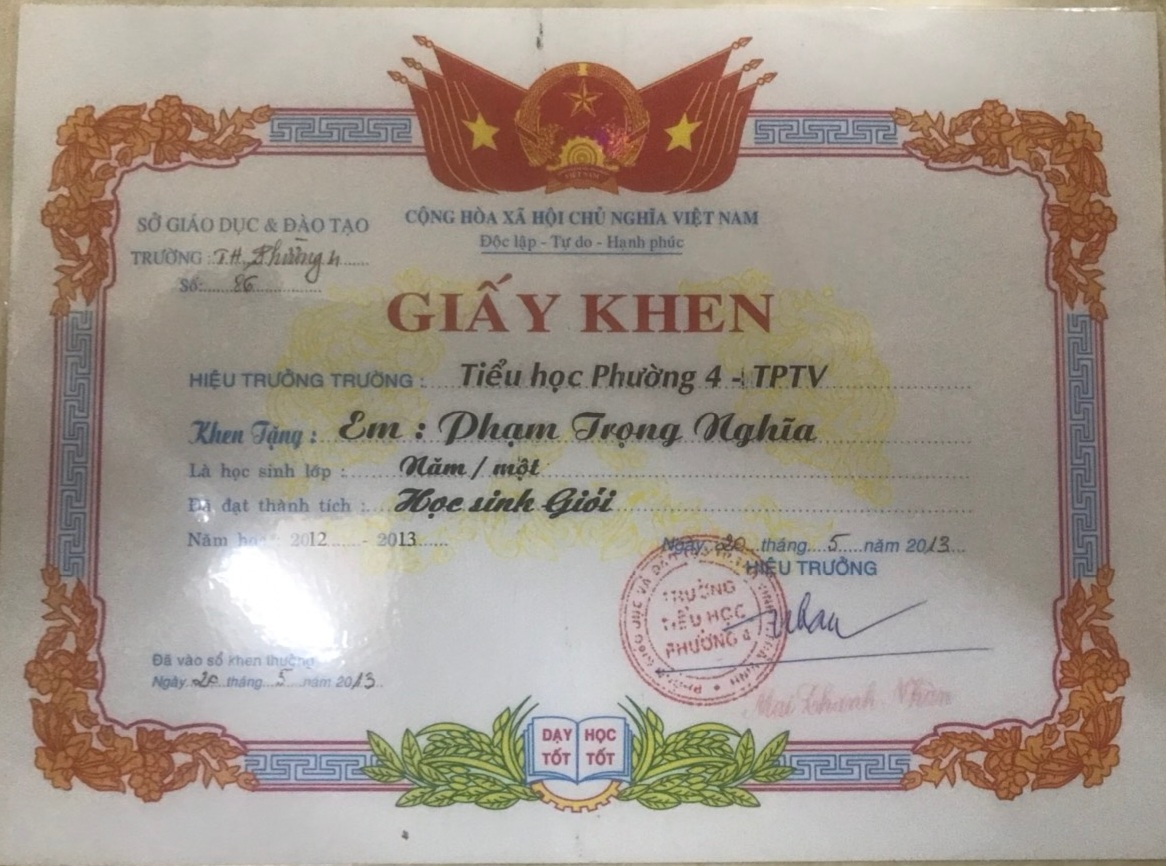 VIỆT NAM
SỞ GIÁO DỤC & ĐÀO TẠO
TRƯỜNG : T.H. Phường 4
Số: 86
CỘNG HÒA XÃ HỘI CHỦ NGHĨA VIỆT NAM
Độc lập - Tự do - Hạnh phúc
GIẤY KHEN
HIỆU TRƯỞNG TRƯỜNG : Tiểu học Phường 4 - TPTV
Khen Tặng : Em : Phạm Trọng Nghĩa
Là học sinh lớp : Năm / một
Đã đạt thành tích : Học sinh Giỏi
Năm học 2012 - 2013
Ngày 20 tháng 5 năm 2013
HIỆU TRƯỞNG
TRƯỜNG
TIỂU HỌC
PHƯỜNG 4
Mai Thanh Nhàn
Đã vào sổ khen thưởng
Ngày 20 tháng 5 năm 2013
DẠY HỌC
TỐT TỐT